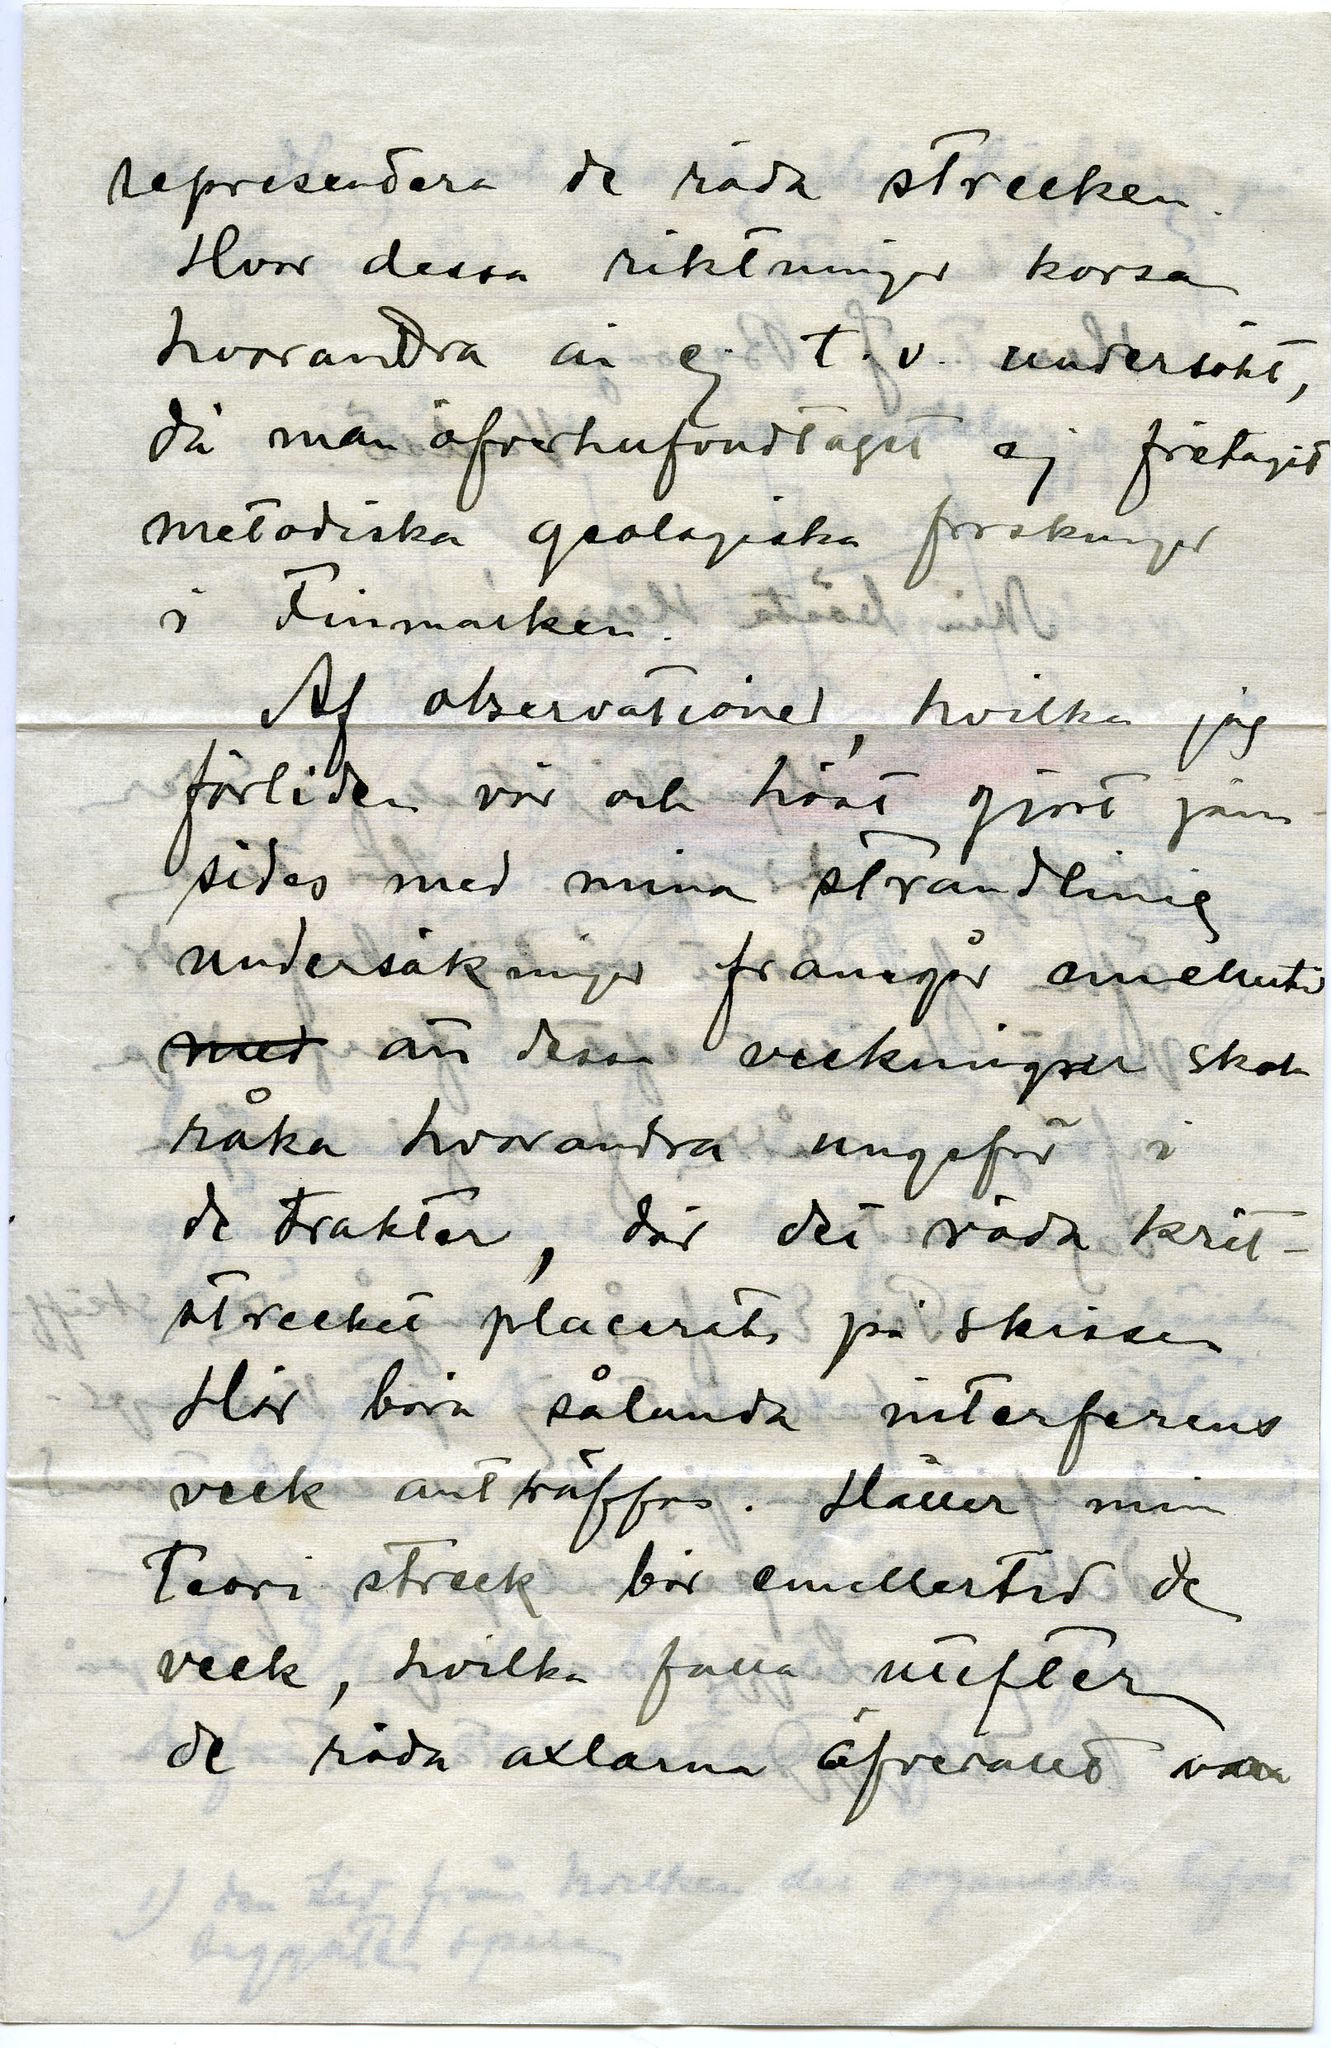 representera de röda strecken.
Hvar dessa riktningar korsa
hvarandra är ej t. v. undersökt,
då man öfverhufvudtaget ej företagit
metodiska geologiska forskningar
i Finmarken.
Af observationer, hvilka jag
förliden vår och höst gjort jäm-
sides med mina strandlinie
undersökningar framgår emellertid
med att dessa veckningar skola
råka hvarandra ungefär i
de trakter, där det röda krit-
strecket placerats på skissen
Här böra sålunda interferens
veck anträffas. Håller min
teori streck bör emellertid de
veck, hvilka falla utefter
de röda axlarna öfverallt vara
1) den tid från hvilken det organiska lifvet
spår